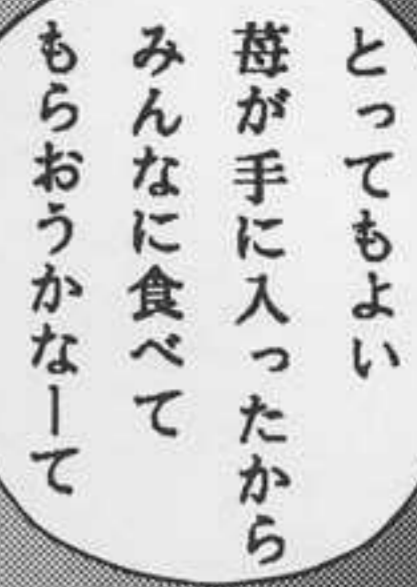 とってもよい
苺が手に入ったから
みんなに食べて
もらおうかなーて